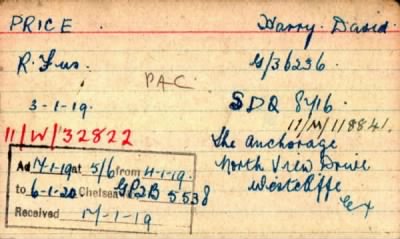 PRICE Harry David
R. Fus. G/36236.
PAC
3-1-19. SDQ 8716.
11/M/118841.
11/W/32822
The Anchorage
North View Drive
Westcliffe
Ex
Ad 14-1-19 at 5/6 from 4-1-19.
to 6-1-20 Chelsea GP2B 5538
Received 14-1-19